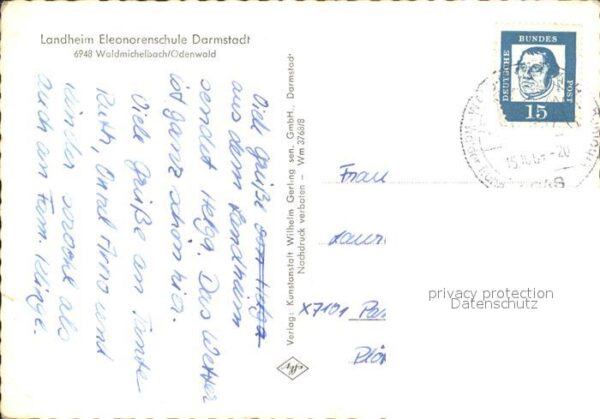 Landheim Eleonorenschule Darmstadt
6948 Waldmichelbach/Odenwald
Viele Grüße von Helga
aus dem Landheim
sendet Helga. Das Wetter
ist ganz schön hier.
Viele Grüße an Tante
Ruth, Onkel Arno und
Kinder sowohl als
auch an Fam. Klinge.
Verlag: Kunstanstalt Wilhelm Gerling sen. GmbH., Darmstadt
Nachdruck verboten – Wm 3768/8
DEUTSCHE
BUNDES
POST
15
Frau
X7101
privacy protection
Datenschutz